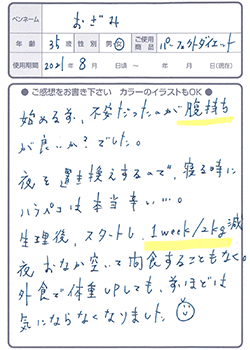 ペンネーム おざみ
年齢 35歳 性別 男・女 ご使用商品 パーフェクトダイエット
使用期間 2021年 8月 日頃 ～ 年 月 日(現在)
●ご感想をお書き下さい カラーのイラストもOK●
始める前、不安だったのが腹持ち
が良いか?でした。
夜を置き換えするので、寝る時に
ハラペコは本当辛い…。
生理後、スタートし、1week/2kg減
夜おなか空いて間食することもなく。
外食で体重UPしても、前ほどは
気にならなくなりました。